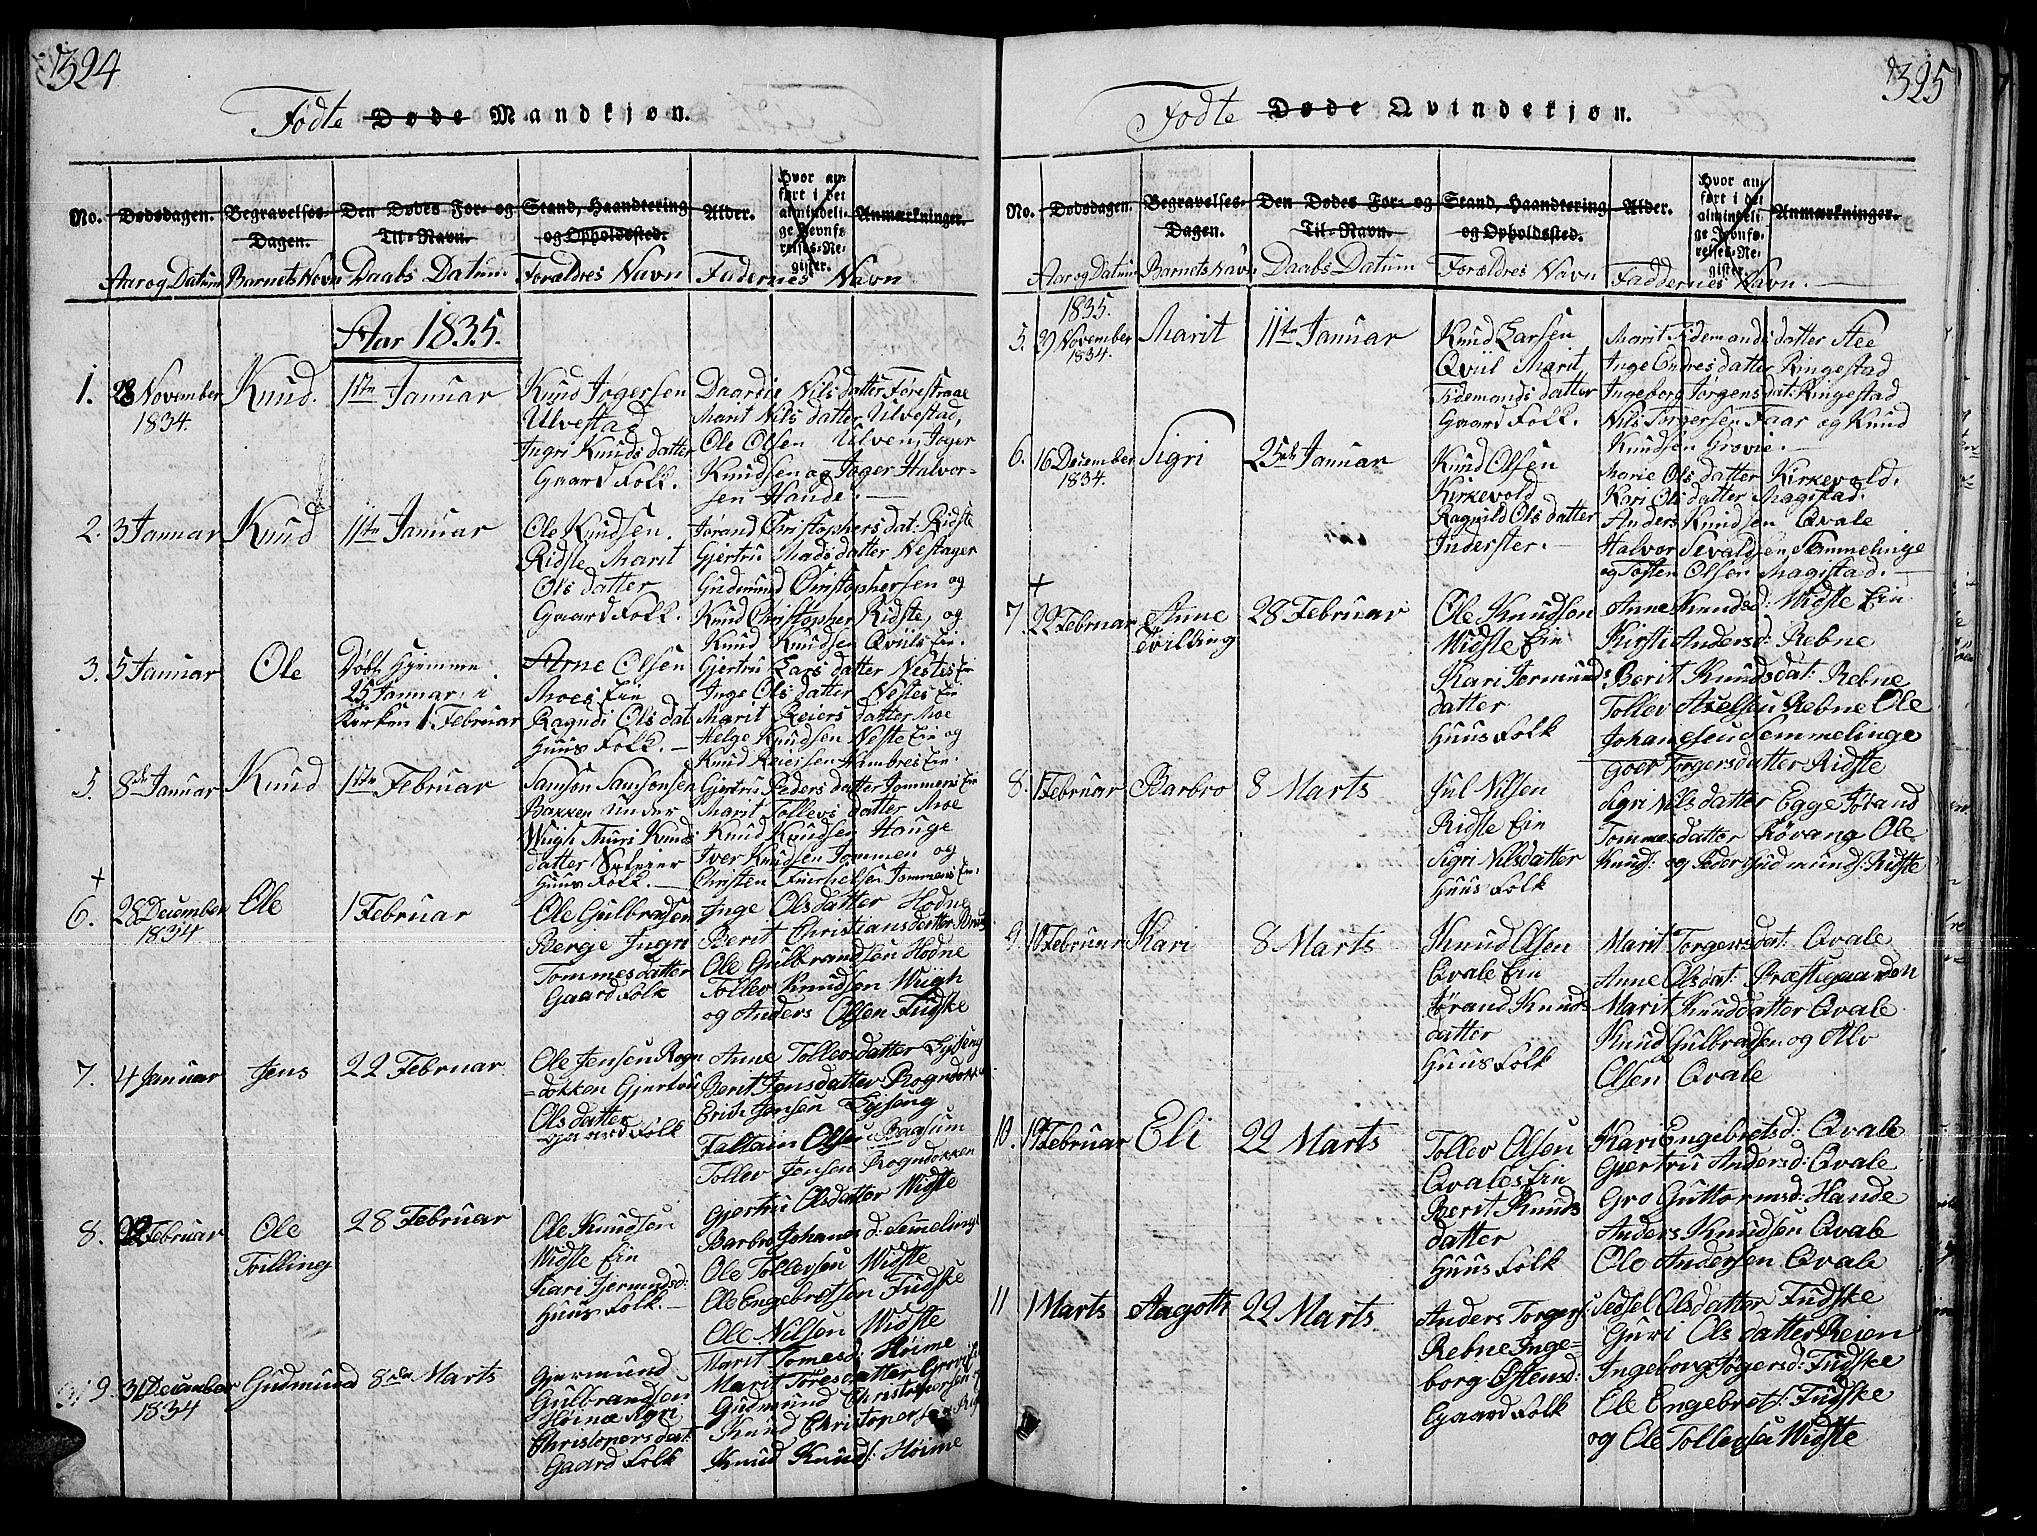 324
Födte Døde Mandkjøn.
No. Dødsdagen. Begravelses-Dagen. Den Dødes For- og Til-Navn. Stand, Haandtering og Opholdssted. Alder. Hvor anført i det almindelige Jevnførelses-Register. Anmærkninger.
Aar og Datum Barnets Navn Daabs Datum Forældres Navn Faderners Navn
Aar 1835.
1. 28 November 1834. Knud. 1ste Januar
Knud Jøgersen
Ulvestad
Ingri Knudsdatter
Gaard Folk.
Nilsdatter Førestraae
Marit Nilsdatter Ulvestad,
Ole Olsen Ulven, Jøger
Knudsen og Jøger Halvor-
sen Hande.
2. 3 Januar Knud 11te Januar
Ole Knudsen
Ridste Marit
Olsdatter
Gaard Folk.
Jørand Christophersdat: Ridste
Gjertru Madsdatter Nestager
Gudmund Christophersen og
Knud Christopher Ridste, og
Knud Knudsen Qviils Ein.
3. 5 Januar Ole Döbt hjemme
25 Januar i
Kirken 1 Februar
Arne Olsen
Moes Ein
Ragndi Olsdat
Huus Folk.
Gjertru Larsdatter Nestes Ein
Inge Olsdatter Nestes Ein
Marit Reiersdatter Moe
Helge Knudsen Neste Ein og
Knud Reiersen Hambres Ein.
5. 8de Januar Knud 1ste Februar
Samson Samsonsen
Bakken under
Wigh Thuri Knuds
datter
Huus Folk.
Gjertru Pedersdatter Jommens Ein
Marit Tollevsdatter Moe
Knud Knudsen Hauge
Iver Knudsen Jommen og
Christen Jommens Ein.
+
6. 28 December 1834 Ole 1 Februar
Ole Gulbrandsen
Berge Ingri
Tommesdatter
Gaard Folk
Inge Olsdatter Hodne
Berit Christiansdatter
Ole Gulbrandsen Hodne
Tollev Knudsen Wigh
og Anders Olsen Fudske
7. 4 Januar Jens 22 Februar
Ole Jensen Rogn
=dokken Gjertru
Olsdatter
Gaard Folk
Anne Tollevsdatter
Berit Jensdatter Rogndokk
Erich Jensen
Olsen Bagsum
Tollev Jensen Rogndokken
8. 22 Februar Ole
Tvilling 28 Februar
Ole Knudsen
Widste Ein
Kari Jermundsd:
Huus Folk.
Gjertru Olsdatter Widste
Barbro Johanesd: Semelinge
Ole Tollevsen Widste
Ole Engebretsen Fudske
Ole Nilsen Widste
9. 31 December 1834 Gudmund 8de Marts
Gjermund
Gulbrandsen
Høime Sigri
Christophersdat:
Gaard Folk
Marit Tomesd: Høime
Marit Toresdatter
Gudmund Christophersen
Knud
Knud Knuds: Høime
325
Födte Døde Qvindekjøn.
No. Dødsdagen. Begravelses-Dagen. Den Dødes For- og Til-Navn. Stand, Haandtering og Opholdssted. Alder. Hvor anført i det almindelige Jevnførelses-Register. Anmærkninger.
Aar og Datum Barnets Navn Daabs Datum Forældres Navn Faddernes Navn.
1835.
5. 29 November 1834. Marit 11te Januar
Knud Larsen
Qviil Marit
Tidemandsdatter
Gaard Folk.
Marit Tidemandsdatter
Inge Endresdatter Ringestad
Ingeborg Jørgensdat: Ringestad
Nils Torgersen Faar og Knud
Knudsen Grovie.
6. 16 December 1834. Sigri 25de Januar
Knud Olsen
Kirkevold
Ragnild Olsdatter
Inderster.
Marie Olsdatter Kirkevold.
Kari Olsdatter Magistad.
Anders Knudsen Qvale
Halvor Sevaldsen Semmelinge
og Tosten Olsen Magistad.
+
7. 22 Februar Anne
Tvilling 28 Februar
Ole Knudsen
Widste Ein
Kari Jermunds
datter
Huus Folk
Anne Knudsd: Widste Ein
Kirsti Andersd: Rebne
Berit Knudsdat: Rebne
Tollev Axelsen Rebne Ole
Johanesen Semmelinge
8. 1 Februar Barbro 8 Marts
Jul Nilsen
Ridste Ein
Sigri Nilsdatter
Huus Folk
Goer Torgersdatter Ridste
Sigri Nilsdatter Egge Jörand
Tommesdatter Røvang Ole
Knuds: og Peder Gudmunds: Ridste
9. 10 Februar Kari 8 Marts
Knud Olsen
Qvale Ein
Jørand Knuds
datter
Huus Folk
Marit Torgersdat: Qvale
Anne Olsdat: Præstegaarden
Marit Knuddatter Qvale
Knud Gulbradsen og Alv
Olsen Qvale
10. 19 Februar Eli 22 Marts
Tollev Olsen
Qvales Ein
Berit Knuds
datter
Huus Folk
Kari Engebretsd: Qvale
Gjertru Andersd: Qvale
Gro Guttormsd: Hande
Anders Knudsen Qvale
Ole Andersen Qvale
11 1 Marts Aagoth 22 Marts
Anders Torgers:
Rebne Inge=
borg Østensd:
Gaard Folk
Sedsel Olsdatter Fudske
Guri Olsdatter Reien
Ingeborg Jøgersd: Fudske
Ole Engebrets: Fudske
og Ole Tollevsen Widste